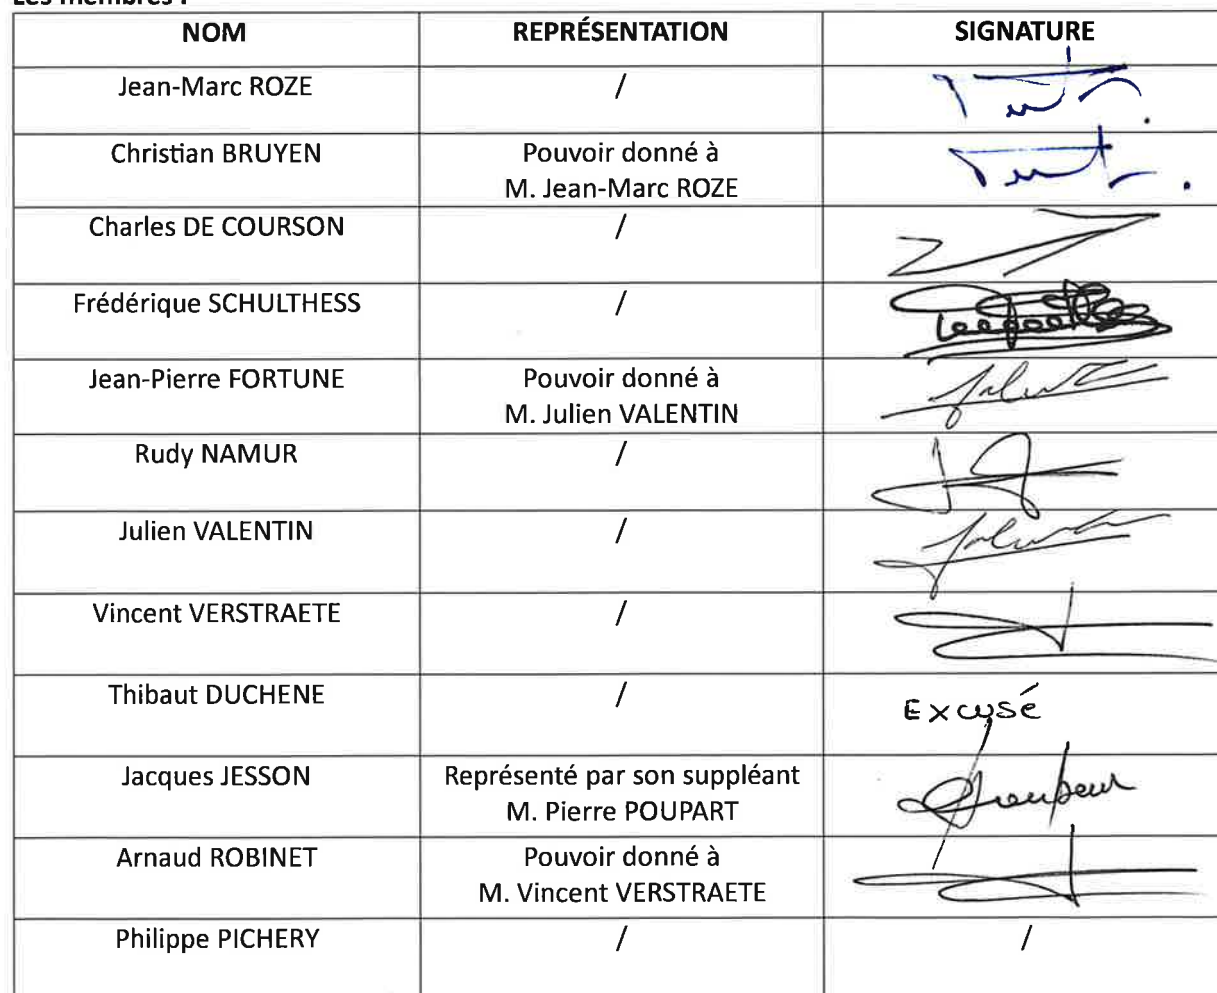 Les membres :
NOM REPRÉSENTATION SIGNATURE
Jean-Marc ROZE /
Christian BRUYEN Pouvoir donné à
M. Jean-Marc ROZE
Charles DE COURSON /
Frédérique SCHULTHESS /
Jean-Pierre FORTUNE Pouvoir donné à
M. Julien VALENTIN
Rudy NAMUR /
Julien VALENTIN /
Vincent VERSTRAETE /
Thibaut DUCHENE / Excusé
Jacques JESSON Représenté par son suppléant
M. Pierre POUPART
Arnaud ROBINET Pouvoir donné à
M. Vincent VERSTRAETE
Philippe PICHERY / /